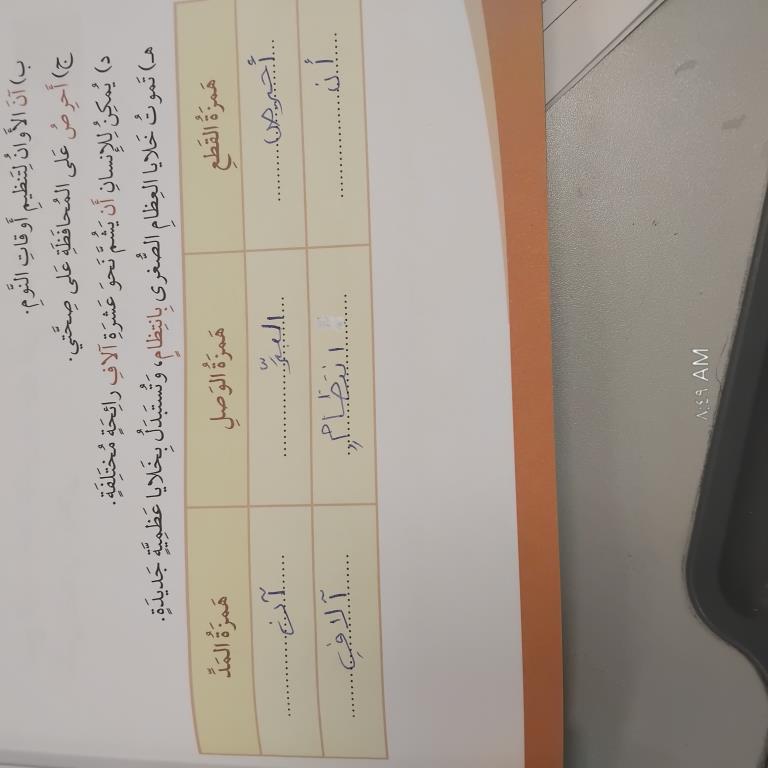 ب) آنَ الأَوانُ لِتَنظيمِ أَوقاتِ النَّومِ.
ج) أَحرِصُ عَلى المُحافَظَةِ عَلى صِحَّتي.
د) يُمكِنُ لِلإِنسانِ أَن يَشُمَّ نَحوَ عَشرَةِ آلافِ رائِحَةٍ مُختَلِفَةٍ.
هـ) تَموتُ خَلايا العِظامِ الصُّغرى بِانتِظامٍ، وَتُستَبدَلُ بِخَلايا عَظمِيَّةٍ جَديدَةٍ.
هَمزَةُ القَطعِ هَمزَةُ الوَصلِ هَمزَةُ المَدِّ
أحرص آن
أن انتظام آلاف
٨:٤٩ AM